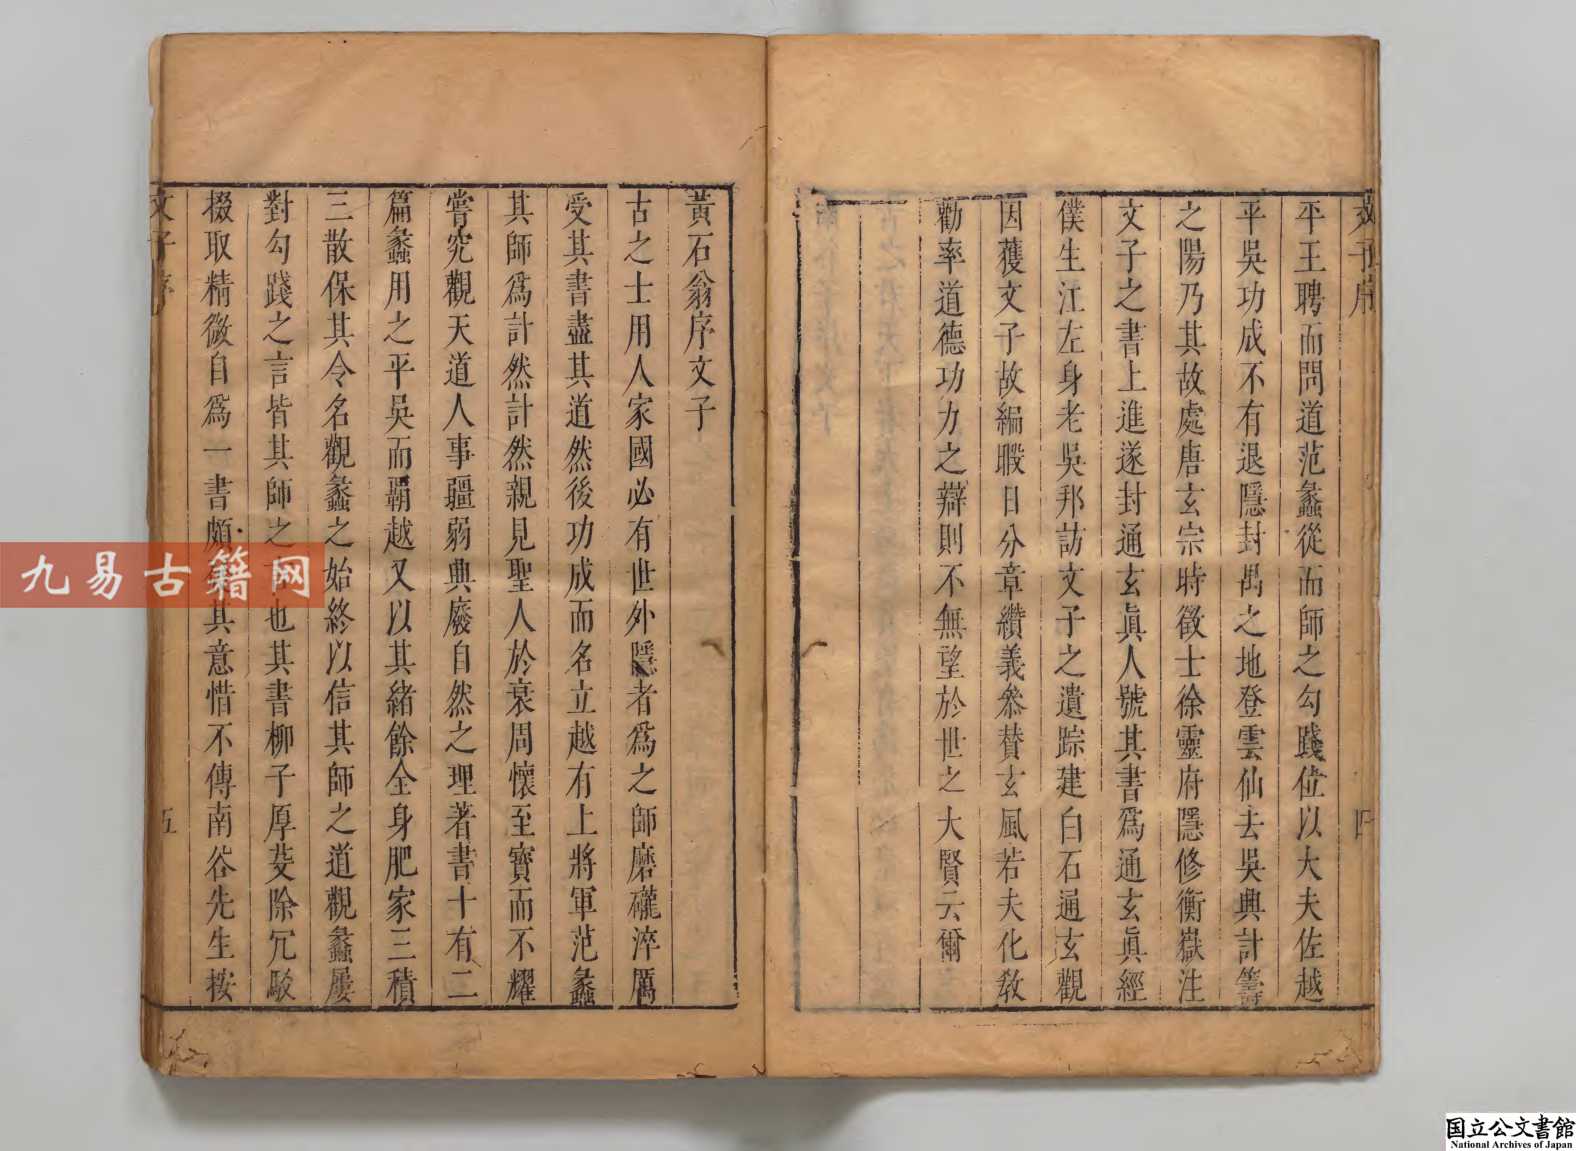 文子序
四
平王聘而問道范蠡從而師之勾踐位以大夫佐越
平吳功成不有退隱封禺之地登雲仙去吳興計籌
之陽乃其故處唐玄宗時徵士徐靈府隱修衡嶽注
文子之書上進遂封通玄眞人號其書爲通玄眞經
僕生江左身老吳邦訪文子之遺踪建白石通玄觀
因獲文子故編暇日分章纘義叅贊玄風若夫化敎
勸率道德功力之辯則不無望於世之大賢云爾
黃石翁序文子
古之士用人家國必有世外隱者爲之師磨礲淬厲
受其書盡其道然後功成而名立越有上將軍范蠡
其師爲計然計然親見聖人於衰周懷至寶而不耀
嘗究觀天道人事疆弱典廢自然之理著書十有二
篇蠡用之平吳而覇越又以其緒餘全身肥家三積
三散保其令名觀蠡之始終以信其師之道觀蠡屢
對勾踐之言皆其師之也其書柳子厚芟除冗駁
掇取精微自爲一書頗其意惜不傳南谷先生按
文子序
五
九易古籍网
国立公文書館
National Archives of Japan